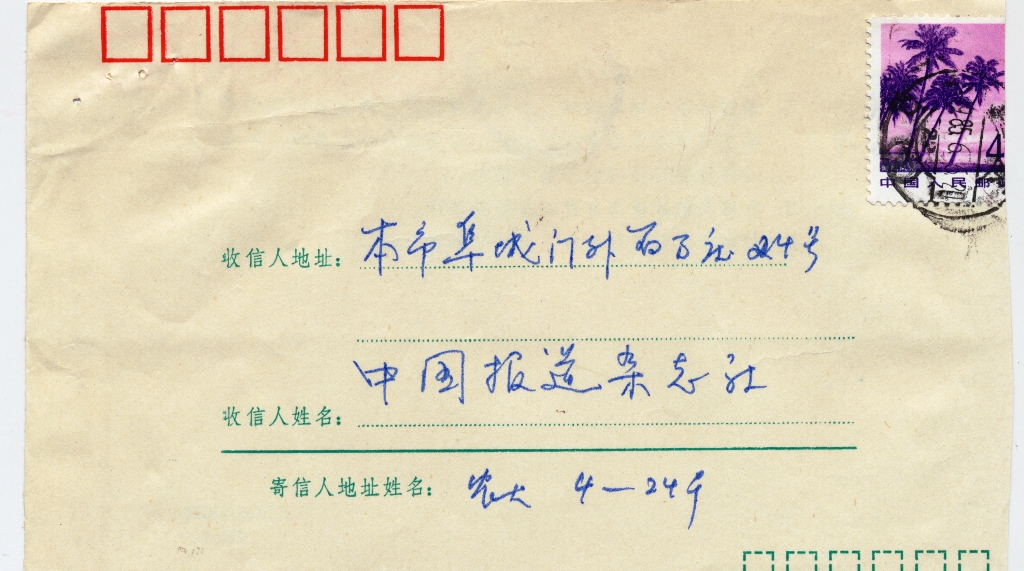 4
中国人民邮
收信人地址：本市阜城门外百万庄24号
中国报道杂志社
收信人姓名：
寄信人地址姓名：农大 4—24号